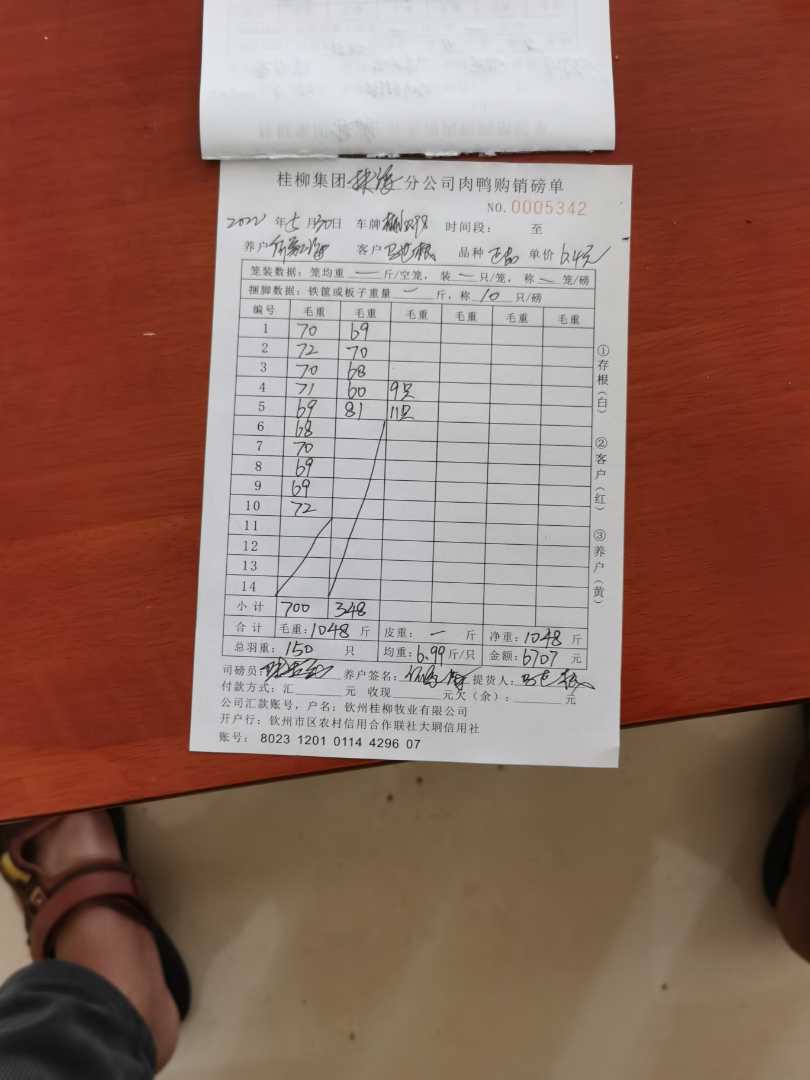 桂柳集团 分公司肉鸭购销磅单
NO.0005342
2022年七月30日 车牌 时间段: 至
养户 客户 品种 正品 单价 6.4元
笼装数据: 笼均重 一 斤/空笼, 装 一 只/笼, 称 一 笼/磅
捆脚数据: 铁筐或板子重量 一 斤, 称 10 只/磅
编号 毛重 毛重 毛重 毛重 毛重 毛重
1 70 69
2 72 70
3 70 68
4 71 60 9只
5 69 81 11只
6 68
7 70
8 69
9 69
10 72
11
12
13
14
小计 700 348
合计 毛重:1048 斤 皮重: 一 斤 净重:1048 斤
总羽重: 150 只 均重:6.99 斤/只 金额:6707 元
司磅员: 养户签名: 提货人:
付款方式: 汇 元 收现 元欠(余): 元
公司汇款账号, 户名: 钦州桂柳牧业有限公司
开户行: 钦州市区农村信用合作联社大垌信用社
账号: 8023 1201 0114 4296 07
①存根(白) ②客户(红) ③养户(黄)